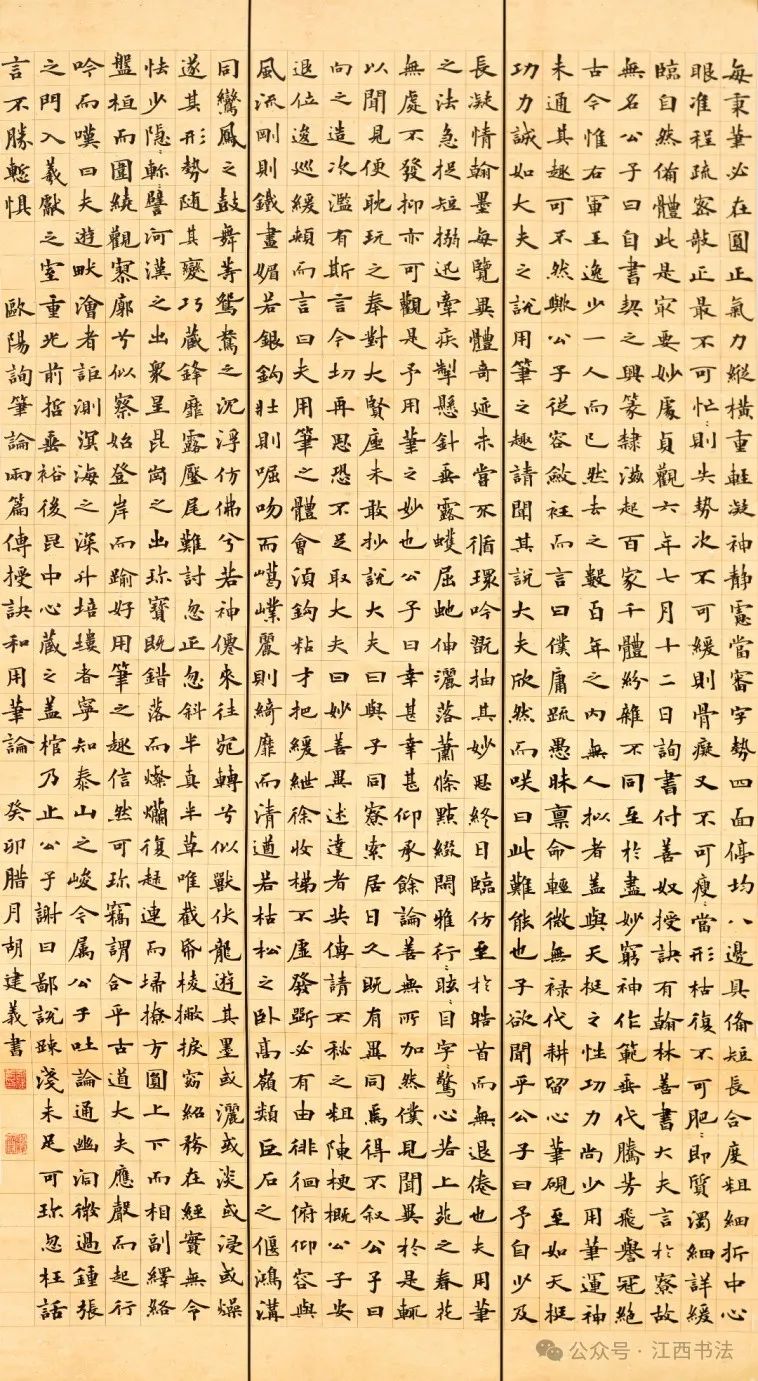 每秉筆必在圓正氣力縱橫重輕凝神靜慮當審字勢四面停均八邊具俻短長合度粗細折中心
眼准程疏密敧正最不可忙:則失勢次不可緩則骨癡又不可瘦:當形枯復不可肥:即質濁細詳緩
臨自然俻體此是㝡要妙處貞觀六年七月十二日詢書付善奴授訣有翰林善書大夫言於寮故
無名公子曰自書契之興篆隷滋起百家千體紛雜不同至於盡妙窮神作範垂代騰芳飛譽冠絶
古今惟右軍王逸少一人而已然去之數百年之内無人拟者蓋與天挺之性功力尚少用筆運神
未通其趣可不然歟公子從容斂衽而言曰僕庸疏愚昧禀命輕微無禄代耕留心筆硯至如天挺
功力誠如大夫之說用筆之趣請聞其說大夫欣然而咲曰此難能也子欲聞乎公子曰予自少及
長凝情翰墨每覽異體奇迹未嘗不循環吟翫抽其妙思終日臨仿至於皓首而無退倦也夫用筆
之法急捉短搦迅牽疾掣懸針垂露蠖屈虵伸灑落蕭條點綴閑雅行:眩目字:驚心若上苑之春花
無處不發抑亦可觀是予用筆之妙也公子曰幸甚幸甚仰承餘論善無所加然僕見聞異於是輒
以聞見便耽玩之奉對大賢座未敢抄說大夫曰與子同寮索居日久既有異同焉得不叙公子曰
向之造次濫有斯言今切再思恐不足取大夫曰妙善異述達者共傳請不秘之粗陳梗概公子安
退位逡巡緩頰而言曰夫用筆之體會湏鉤粘才把緩紲徐收梯不虛發斫必有由徘徊俯仰容與
風流剛則鐵畫媚若銀鈎壯則啒吻而嶱嶫麗則綺靡而清遒若枯松之卧高嶺類巨石之偃鴻溝
同鸞鳳之鼓舞等鴛鴦之沉浮仿佛兮若神僊來往宛轉兮似獸伏龍遊其墨或灑或淡或浸或燥
遂其形勢随其變巧藏鋒靡露壓尾難討忽正忽斜半真半草唯截帋棱撇捩窈紹務在經實無令
怯少隠斬:譬河漢之出衆呈昆崗之出珎寶既錯落而燦爛復趢連而掃撩方圓上下而相副繹絡
盤桓而圍繞觀寥廓兮似察始登岸而踰好用筆之趣信然可珎竊謂合乎古道大夫應聲而起行
吟而嘆曰夫遊畎澮者詎測溟海之深升培塿者寧知泰山之峻今属公子吐論通幽洞微過鍾張
之門入羲獻之室重光前哲垂裕後昆中心藏之蓋棺乃止公子謝曰鄙說踈淺未足可珎忽枉話
言不勝慙惧 歐陽詢筆論兩篇傳授訣和用筆論 癸卯腊月胡建義書
公众号·江西书法